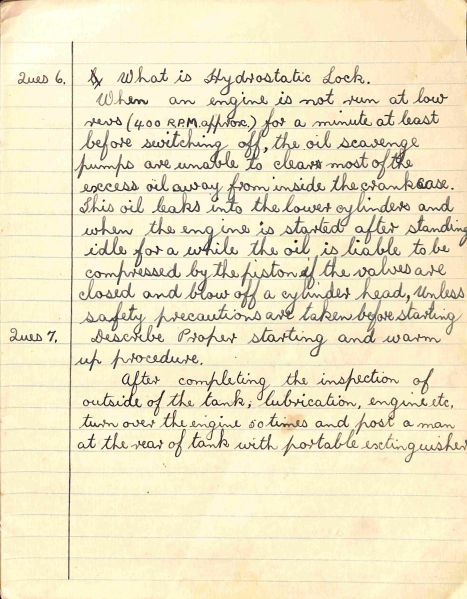 Ques 6. What is Hydrostatic Lock.
When an engine is not run at low
revs (400 R.P.M. approx.) for a minute at least
before switching off, the oil scavenge
pumps are unable to clear most of the
excess oil away from inside the crankcase.
This oil leaks into the lower cylinders and
when the engine is started after standing
idle for a while the oil is liable to be
compressed by the piston if the valves are
closed and blow off a cylinder head, Unless
safety precautions are taken before starting
Ques 7. Describe Proper starting and warm
up procedure.
After completing the inspection of
outside of the tank, lubrication, engine etc,
turn over the engine 50 times and post a man
at the rear of tank with portable extinguisher